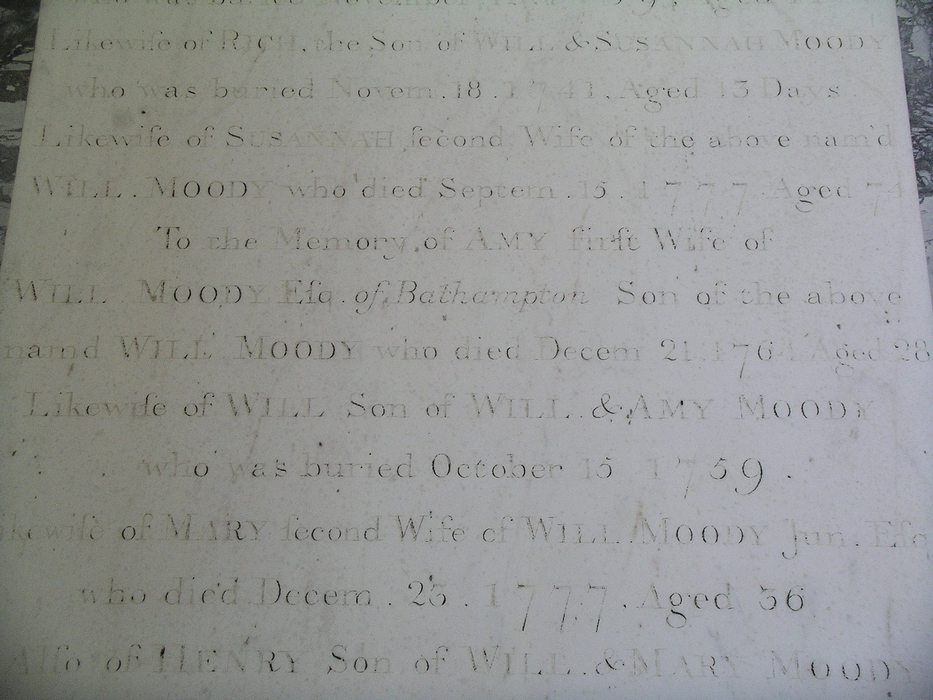 who was buried November
Likewiſe of RICH, the Son of WILL & SUSANNAH MOODY
who was buried Novem. 18. 1741. Aged 13 Days
Likewiſe of SUSANNAH ſecond Wife of the above nam'd
WILL. MOODY who died Septem. 15. 1777 Aged 74
To the Memory of AMY firſt Wife of
WILL MOODY Eſq. of Bathampton Son of the above
namd WILL MOODY who died Decem 21. Aged 28
Likewiſe of WILL Son of WILL. & AMY MOODY
who was buried October 15 1759.
Likewiſe of MARY ſecond Wife of WILL. MOODY Jun. Eſq
who died Decem. 23. 1777. Aged 36
Alſo of HENRY Son of WILL. & MARY MOODY